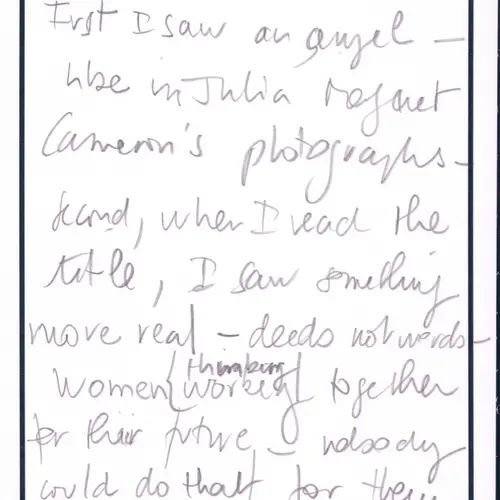 First I saw an angel –
like in Julia Margaret
Cameron's photographs –
second, when I read the
title, I saw something
more real – deeds not words –
thinking
women {working} together
for their future – nobody
could do that for them